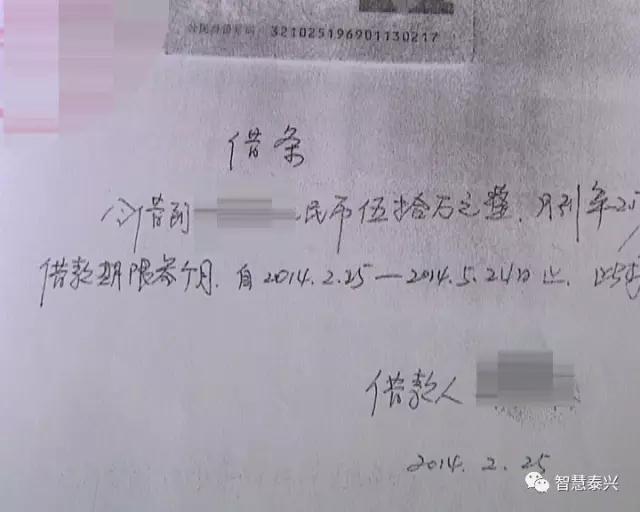 公民身份号码 321025196901130217
借条
今借到 民币伍拾万元整，月利率25
借款期限叁个月，自2014.2.25—2014.5.24日止，此据
借款人
2014.2.25
智慧泰兴